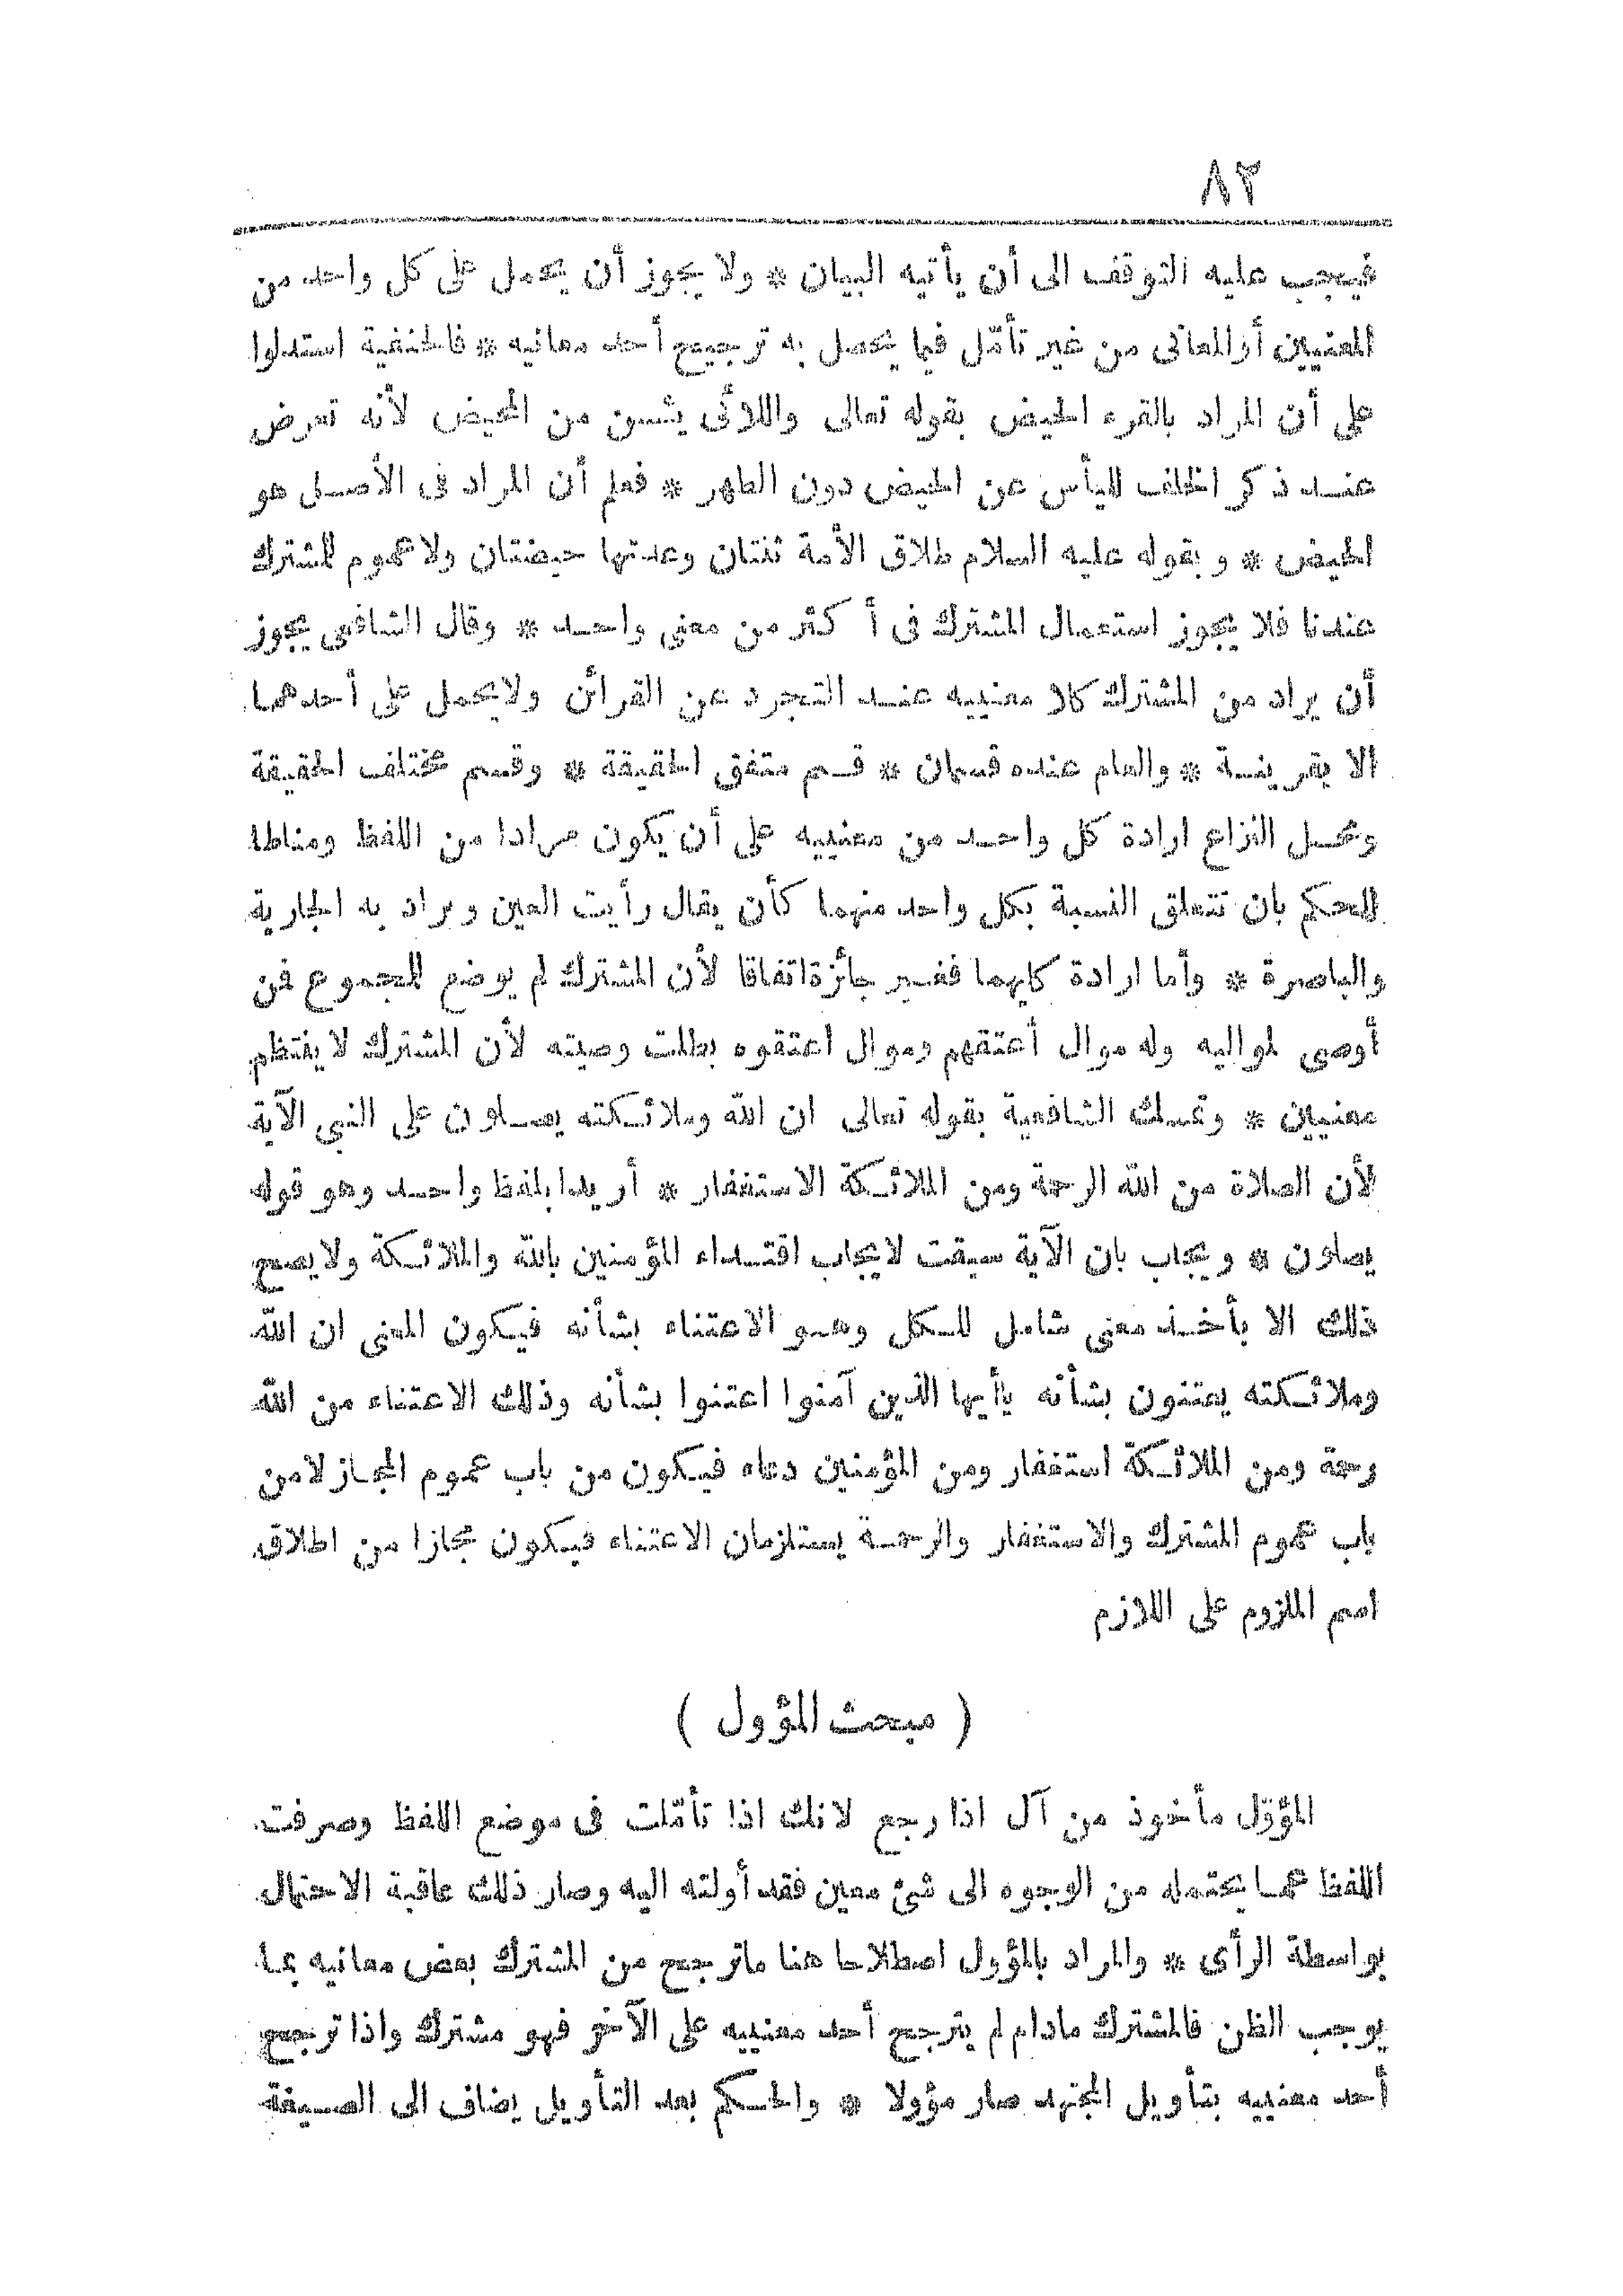 ٨٢
فيجب عليه التوقف الى أن يأتيه البيان * ولا يجوز أن يحمل على كل واحد من
المعنيين أو المعانى من غير تأمّل فيما يحصل به ترجيح أحد معانيه * فالحنفية استدلوا
على أن المراد بالقرء الحيض بقوله تعالى واللائى يئسن من المحيض لأنه تعرض
عند ذكر الخلف لليأس عن الحيض دون الطهر * فعلم أن المراد فى الأصل هو
الحيض * وبقوله عليه السلام طلاق الأمة ثنتان وعدتها حيضتان ولا عموم للمشترك
عندنا فلا يجوز استعمال المشترك فى أكثر من معنى واحد * وقال الشافعى يجوز
أن يراد من المشترك كلا معنييه عند التجرد عن القرائن ولا يحمل على أحدهما
الا بقرينة * والعام عنده قسمان * قسم متفق الحقيقة * وقسم مختلف الحقيقة
ومحل النزاع ارادة كل واحد من معنييه على أن يكون مرادا من اللفظ ومناطا
للحكم بان تتعلق النسبة بكل واحد منهما كأن يقال رأيت العين ويراد به الجارية
والباصرة * وأما ارادة كليهما فغير جائزة اتفاقا لأن المشترك لم يوضع للمجموع فمن
أوصى لمواليه وله موال أعتقهم وموال اعتقوه بطلت وصيته لأن المشترك لا ينتظم
معنيين * وتمسك الشافعية بقوله تعالى ان الله وملائكته يصلون على النبي الآية
لأن الصلاة من الله الرحمة ومن الملائكة الاستغفار * أريدا بلفظ واحد وهو قوله
يصلون * ويجاب بان الآية سيقت لايجاب اقتداء المؤمنين بالله والملائكة ولا يصح
ذلك الا بأخذ معنى شامل للكل وهو الاعتناء بشأنه فيكون المعنى ان الله
وملائكته يعتنون بشأنه يأيها الذين آمنوا اعتنوا بشأنه وذلك الاعتناء من الله
رحمة ومن الملائكة استغفار ومن المؤمنين دعاء فيكون من باب عموم المجاز لا من
باب عموم المشترك والاستغفار والرحمة يستلزمان الاعتناء فيكون مجازا من اطلاق
اسم الملزوم على اللازم
( مبحث المؤول )
المؤوّل مأخوذ من آل اذا رجع لانك اذا تأمّلت فى موضع اللفظ وصرفت
اللفظ عما يحتمله من الوجوه الى شئ معين فقد أولته اليه وصار ذلك عاقبة الاحتمال
بواسطة الرأى * والمراد بالمؤول اصطلاحا هنا ماترجح من المشترك بعض معانيه بما
يوجب الظن فالمشترك مادام لم يترجح أحد معنييه على الآخر فهو مشترك واذا ترجح
أحد معنييه بتأويل المجتهد صار مؤولا * والحكم بعد التأويل يضاف الى الصيغة